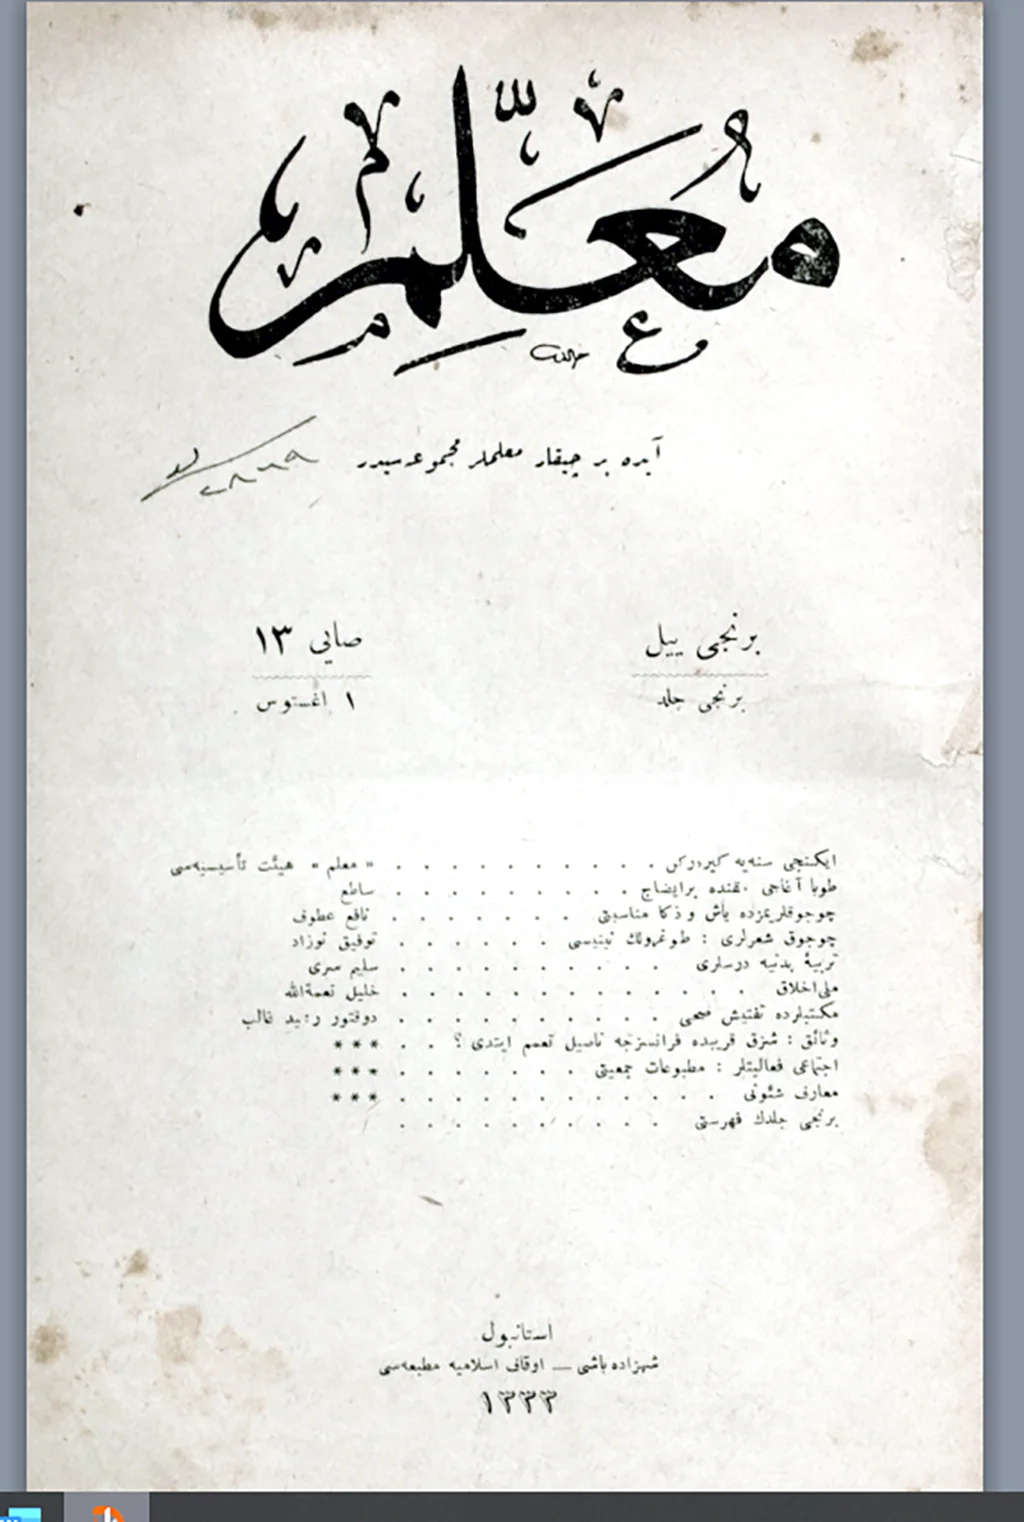 معلم
آیده بر چیقار معلملر مجموعه‌سیدر
برنجی ییل
برنجی جلد
صایی ١٣
١ اغستوس
ایکنجی سنه‌یه کیررکن . . . . . . . . . . « معلم » هیئت تأسیسیه‌سی
طوبا آغاجی حقنده برایضاح . . . . . . . . . ساطع
چوجوقلریمزده یاش و ذکا مناسبتی . . . . . . . نافع عطوف
چوجوق شعرلری : طوغرولك نینیسی . . . . . . توفیق نوزاد
تربیهٔ بدنیه درسلری . . . . . . . . . . سلیم سری
ملی اخلاق . . . . . . . . . . . . . خلیل نعمةالله
مکتبلرده تفتیش صحی . . . . . . . . . . دوقتور رشید غالب
وثائق : شرق قریبده فرانسزجه ناصیل تعمم ایتدی ؟ . . * * *
اجتماعی فعالیتلر : مطبوعات جمعیتی . . . . . . . * * *
معارف شئونی . . . . . . . . . . . . * * *
برنجی جلدك فهرستی . . . . . . . . . .
استانبول
شهزاده باشی — اوقاف اسلامیه مطبعه‌سی
١٣٣٣